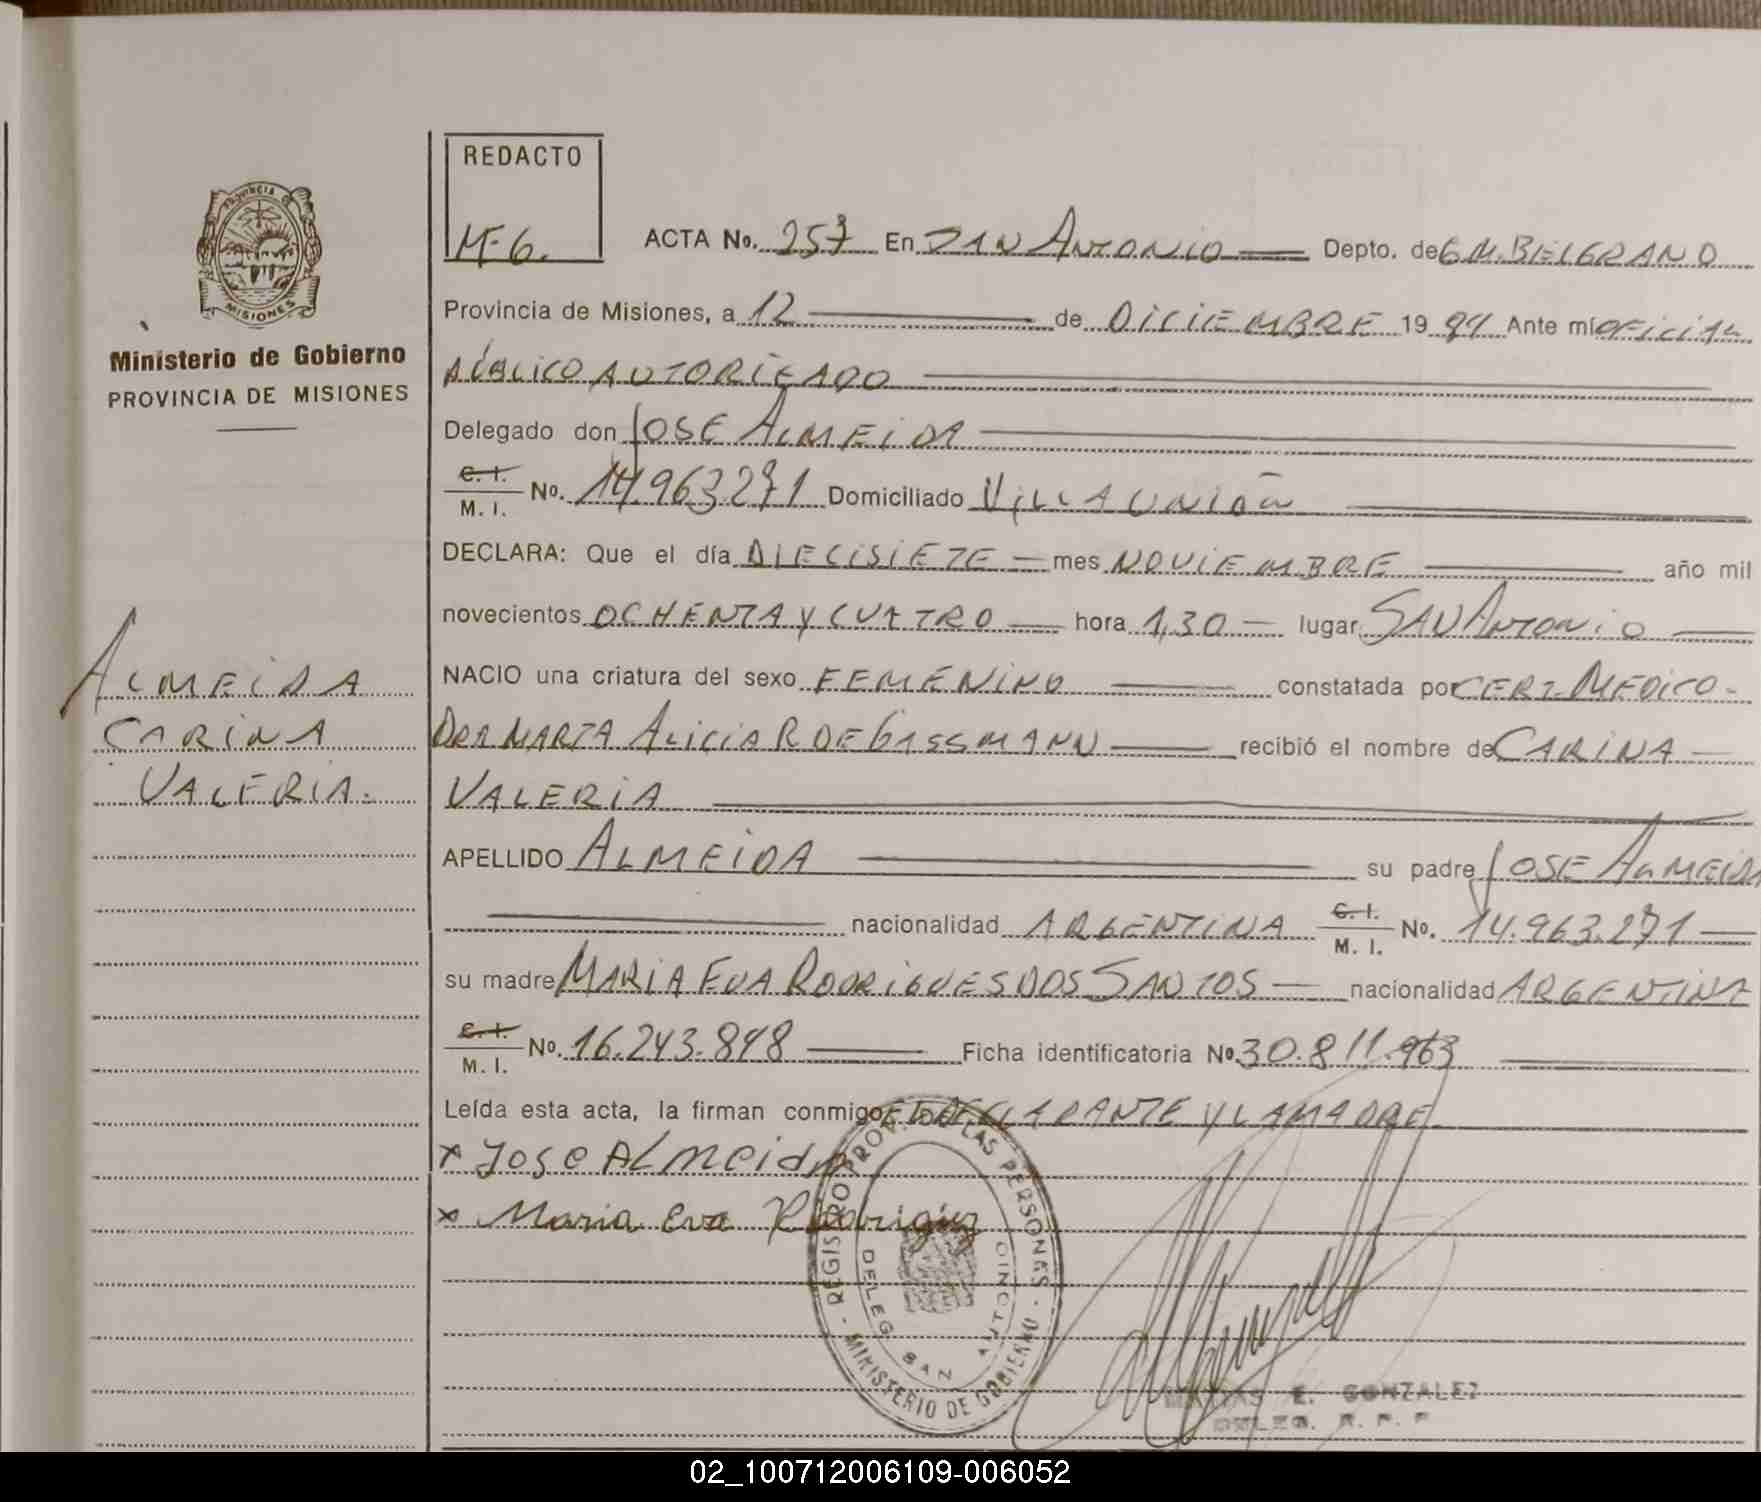 REDACTO
M-6.
PROVINCIA DE
MISIONES
Ministerio de Gobierno
PROVINCIA DE MISIONES
ALMEIDA
CARINA
VALERIA.
ACTA No. 257 En SAN ANTONIO Depto. de G M. BELGRANO
Provincia de Misiones, a 12 de DICIEMBRE 1984 Ante mí OFICIAL
PÚBLICO AUTORIZADO
Delegado don JOSE ALMEIDA
C. I. / M. I. No. 14.963.271 Domiciliado VILLA UNIÓN
DECLARA: Que el día DIECISIETE mes NOVIEMBRE año mil
novecientos OCHENTA Y CUATRO hora 1,30 lugar SAN ANTONIO
NACIO una criatura del sexo FEMENINO constatada por CERT. MEDICO-
DRA MARTA ALICIA R DE GASSMANN recibió el nombre de CARINA
VALERIA
APELLIDO ALMEIDA su padre JOSE ALMEIDA
nacionalidad ARGENTINA C. I. / M. I. No. 14.963.271
su madre MARIA EVA RODRIGUES DOS SANTOS nacionalidad ARGENTINA
C. I. / M. I. No. 16.243.848 Ficha identificatoria No. 30.811.963
Leída esta acta, la firman conmigo EL DECLARANTE Y LA MADRE.
x Jose ALmeida
x Maria Eva Rodriguez
REGISTRO PROV. DE LAS PERSONAS - MINISTERIO DE GOBIERNO -
DELEG. SAN ANTONIO
MATIAS E. GONZALEZ
DELEG. R. P. P
02_100712006109-006052